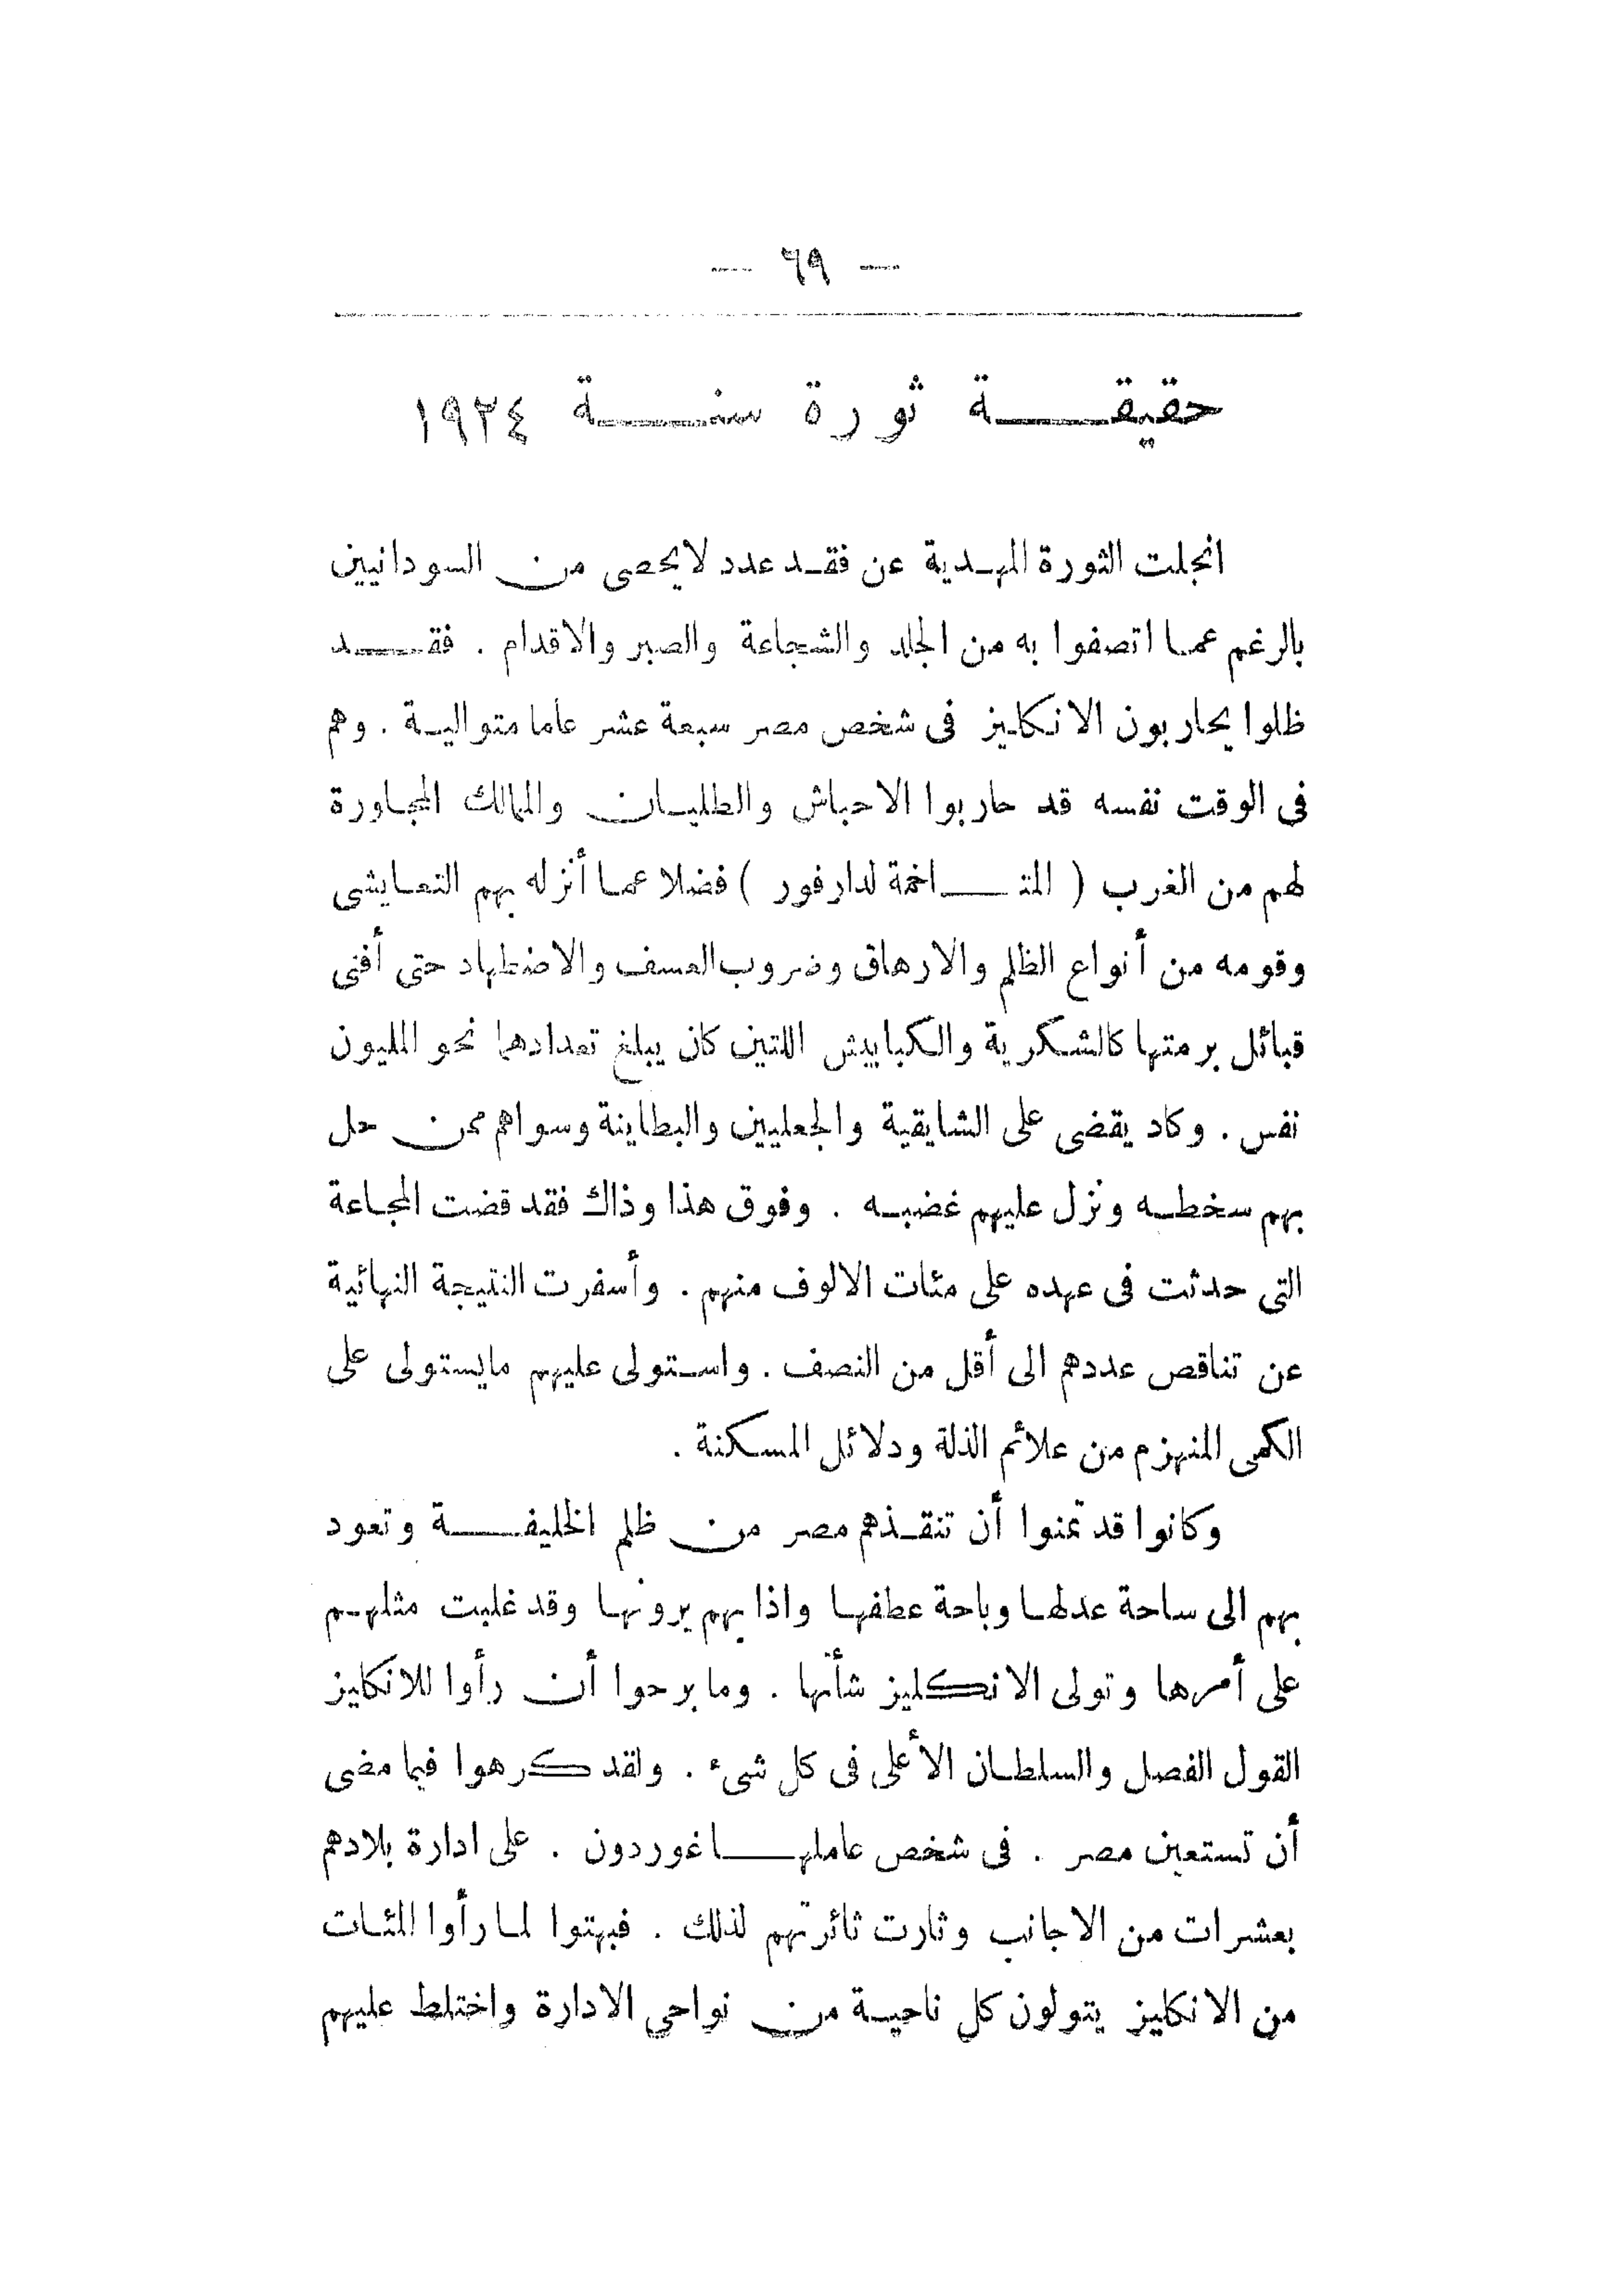 — ٦٩ —
حقيقة ثورة سنة ١٩٢٤
انجلت الثورة المهدية عن فقد عدد لايحصى من السودانيين
بالرغم عما اتصفوا به من الجلد والشجاعة والصبر والاقدام . فقد
ظلوا يحاربون الانكليز فى شخص مصر سبعة عشر عاما متوالية . وهم
فى الوقت نفسه قد حاربوا الاحباش والطليان والممالك المجاورة
لهم من الغرب ( المتاخمة لدارفور ) فضلا عما أنزله بهم التعايشى
وقومه من أنواع الظلم والارهاق وضروب العسف والاضطهاد حتى أفنى
قبائل برمتها كالشكرية والكبابيش اللتين كان يبلغ تعدادهما نحو المليون
نفس . وكاد يقضى على الشايقية والجعليين والبطاينة وسواهم ممن حل
بهم سخطه ونزل عليهم غضبه . وفوق هذا وذاك فقد قضت المجاعة
التى حدثت فى عهده على مئات الالوف منهم . وأسفرت النتيجة النهائية
عن تناقص عددهم الى أقل من النصف . واستولى عليهم مايستولى على
الكمى المنهزم من علائم الذلة ودلائل المسكنة .
وكانوا قد تمنوا أن تنقذهم مصر من ظلم الخليفة وتعود
بهم الى ساحة عدلها وباحة عطفها واذا بهم يرونها وقد غلبت مثلهم
على أمرها وتولى الانكليز شأنها . وما برحوا أن رأوا للانكليز
القول الفصل والسلطان الأعلى فى كل شىء . ولقد كرهوا فيما مضى
أن تستعين مصر . فى شخص عاملها غوردون . على ادارة بلادهم
بعشرات من الاجانب وثارت ثائرتهم لذلك . فبهتوا لما رأوا المئات
من الانكليز يتولون كل ناحية من نواحى الادارة واختلط عليهم